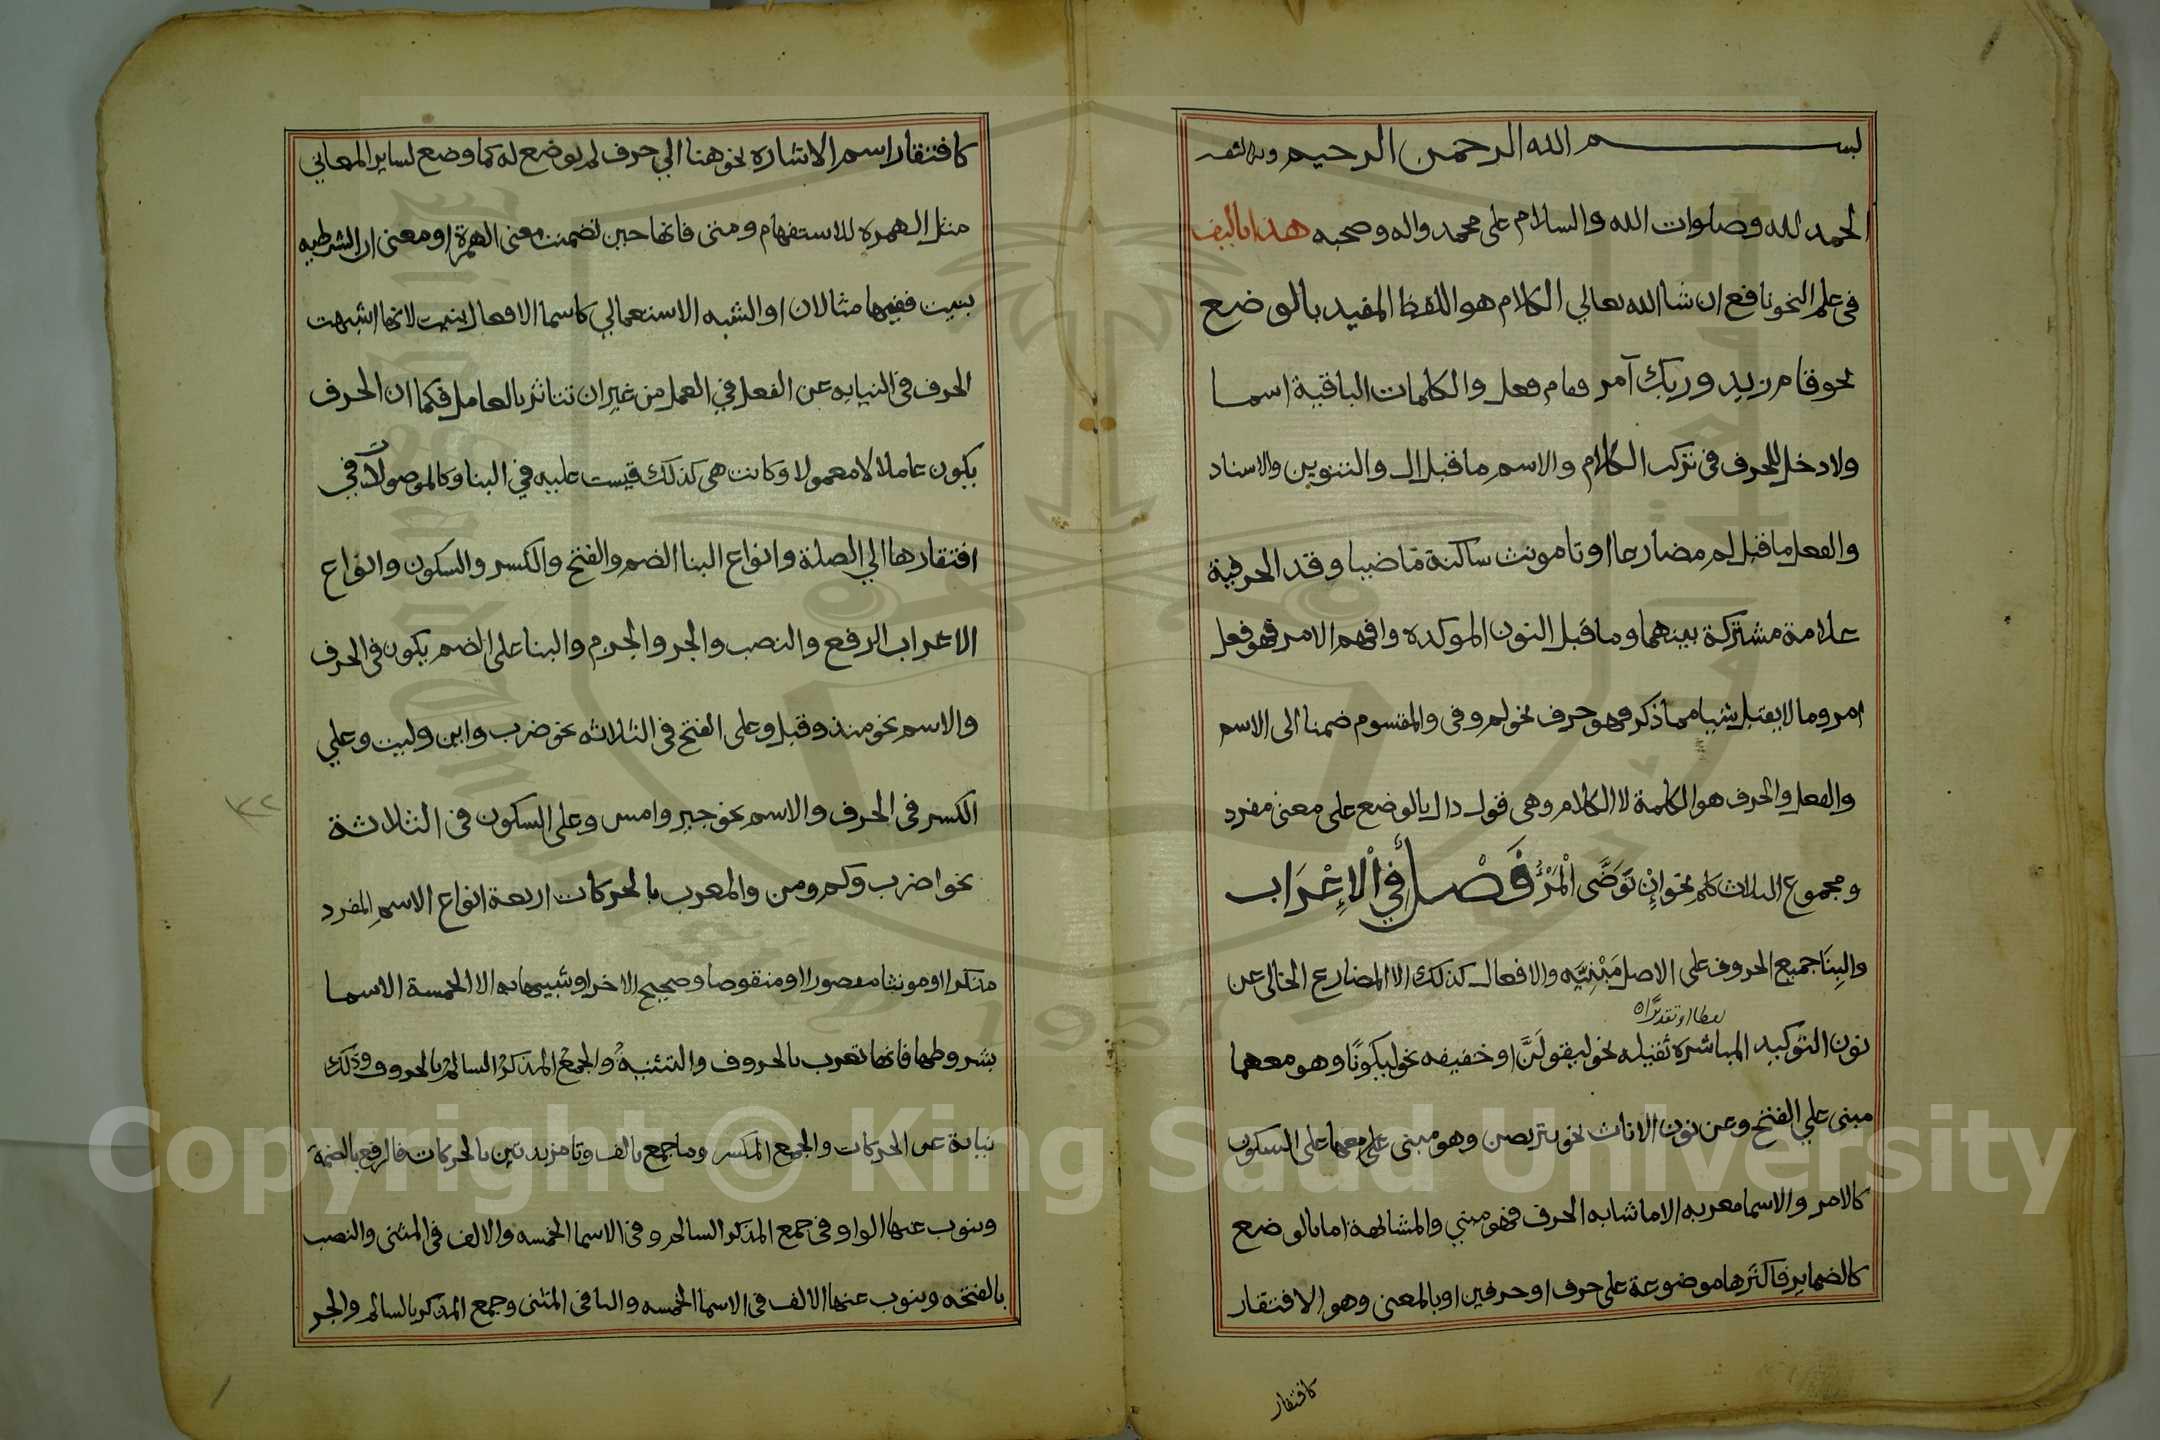 بسم الله الرحمن الرحيم وبه الثقه
الحمد لله وصلوات الله والسلام على محمد واله وصحبه هذا تاليف
في علم النحو نافع ان شا الله تعالي الكلام هو اللفظ المفيد بالوضع
نحو قام زيد وربك آمر فقام فعل والكلمات الباقية اسما
ولا دخل للحرف في تركب الكلام والاسم ما قبل ال والتنوين والاسناد
والفعل ما قبل لم مضارعا او تا مونث ساكنة ماضيا وقد الحرفية
علامة مشتركة بينهما وما قبل النون الموكده وافهم الامر فهو فعل
امر وما لا يقبل شيا مما ذكر فهو حرف نحو لم وفي والمقسوم ضمنا الى الاسم
والفعل والحرف هو الكلمة لا الكلام وهي قول دال بالوضع على معنى مفرد
ومجموع الثلاث كلم نحو إن توَضَّى الْمَرْءُ فَصْل فِي الْإِعْرَاب
والبِنَا جميع الحروف على الاصل مَبْنِيَّه والافعال كذلك الا المضارع الخالي عن
لفظا او تقديرًا
نون التوكيد المباشره ثقيله نحو ليقولَنَّ او خفيفه نحو ليكونًا وهو معهما
مبنى علي الفتح وعن نون الاناث نحو يتربصن وهو مبنى على معها على السكون
كالامر والاسما معربه الا ما شابه الحرف فهو مبني والمشابهة اما بالوضع
كالضماير فاكثرها موضوعة على حرف او حرفين او بالمعنى وهو الافتقار
كافتقار
كافتقار اسم الاشاره نحو هنا الي حرف لم يوضع له كما وضع لساير المعاني
مثل الهمزه للاستفهام ومتى فانها حين تضمنت معنى الهمزة او معنى ان الشرطيه
بنيت ففيها مثالان او الشبه الاستعمالي كاسما الافعال بنيت لانها اشبهت
الحرف في النيابه عن الفعل في العمل من غير ان تتاثر بالعامل فكما ان الحرف
يكون عاملا لا معمولا وكانت هي كذلك قيست عليه في البنا وكالموصولات في
افتقارها الي الصلة وانواع البنا الضم والفتح والكسر والسكون وانواع
الاعراب الرفع والنصب والجر والجزم والبنا على الضم يكون في الحرف
والاسم نحو منذ وقبل وعلى الفتح في الثلاثه نحو ضرب واين وليت وعلي
الكسر في الحرف والاسم نحو جير وامس وعلى السكون في الثلاثة
نحو اضرب وكم ومن والمعرب بالحركات اربعة انواع الاسم المفرد
مذكرا او مونثا مقصورا او منقوصا وصحيح الاخر او شبيها به الا الخمسة الاسما
بشروطها فانها تعرب بالحروف والتثنيه والجمع المذكر السالم بالحروف وذلك
نيابة عن الحركات والجمع المكسر وما جمع بالف وتا مزيدتين بالحركات فالرفع بالضمة
وينوب عنها الواو في جمع المذكر السالم وفي الاسما الخمسه والالف في المثنى والنصب
بالفتحه وينوب عنها الالف في الاسما الخمسه واليا في المثنى وجمع المذكر بالسالم والجر
Copyright © King Saud University
1957